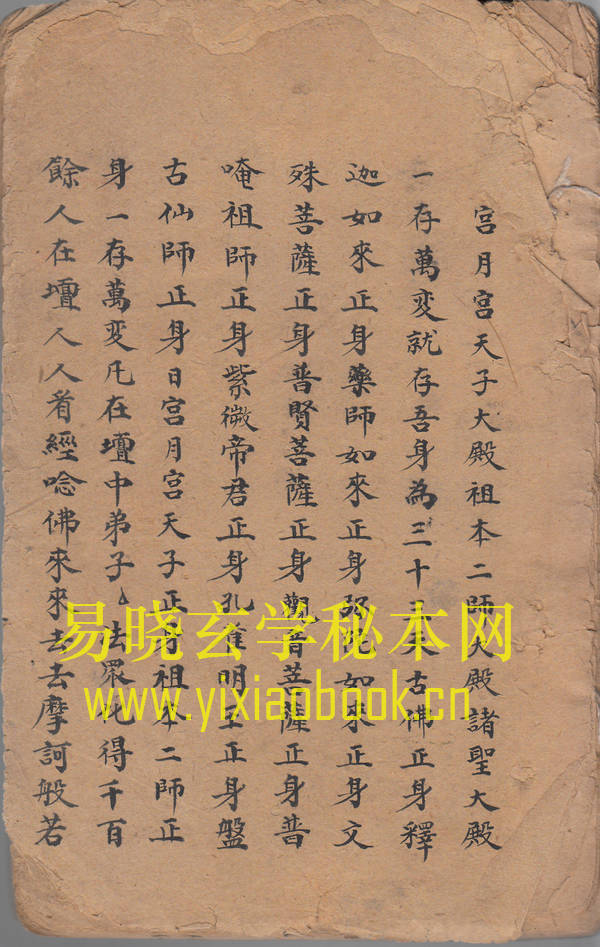 宮月宮天子大殿祖本二師大殿諸聖大殿
一存萬变就存吾身為三十天古佛正身釋
迦如來正身藥師如來正身弥陀如來正身文
殊菩薩正身普賢菩薩正身觀音菩薩正身普
唵祖師正身紫微帝君正身孔雀明王正身盤
古仙師正身日宮月宮天子正身祖本二師正
身一存萬变凡在壇中弟子法眾化得千百
餘人在壇人人看經唸佛來來去去摩訶般若
易晓玄学秘本网
www.yixianbook.cn